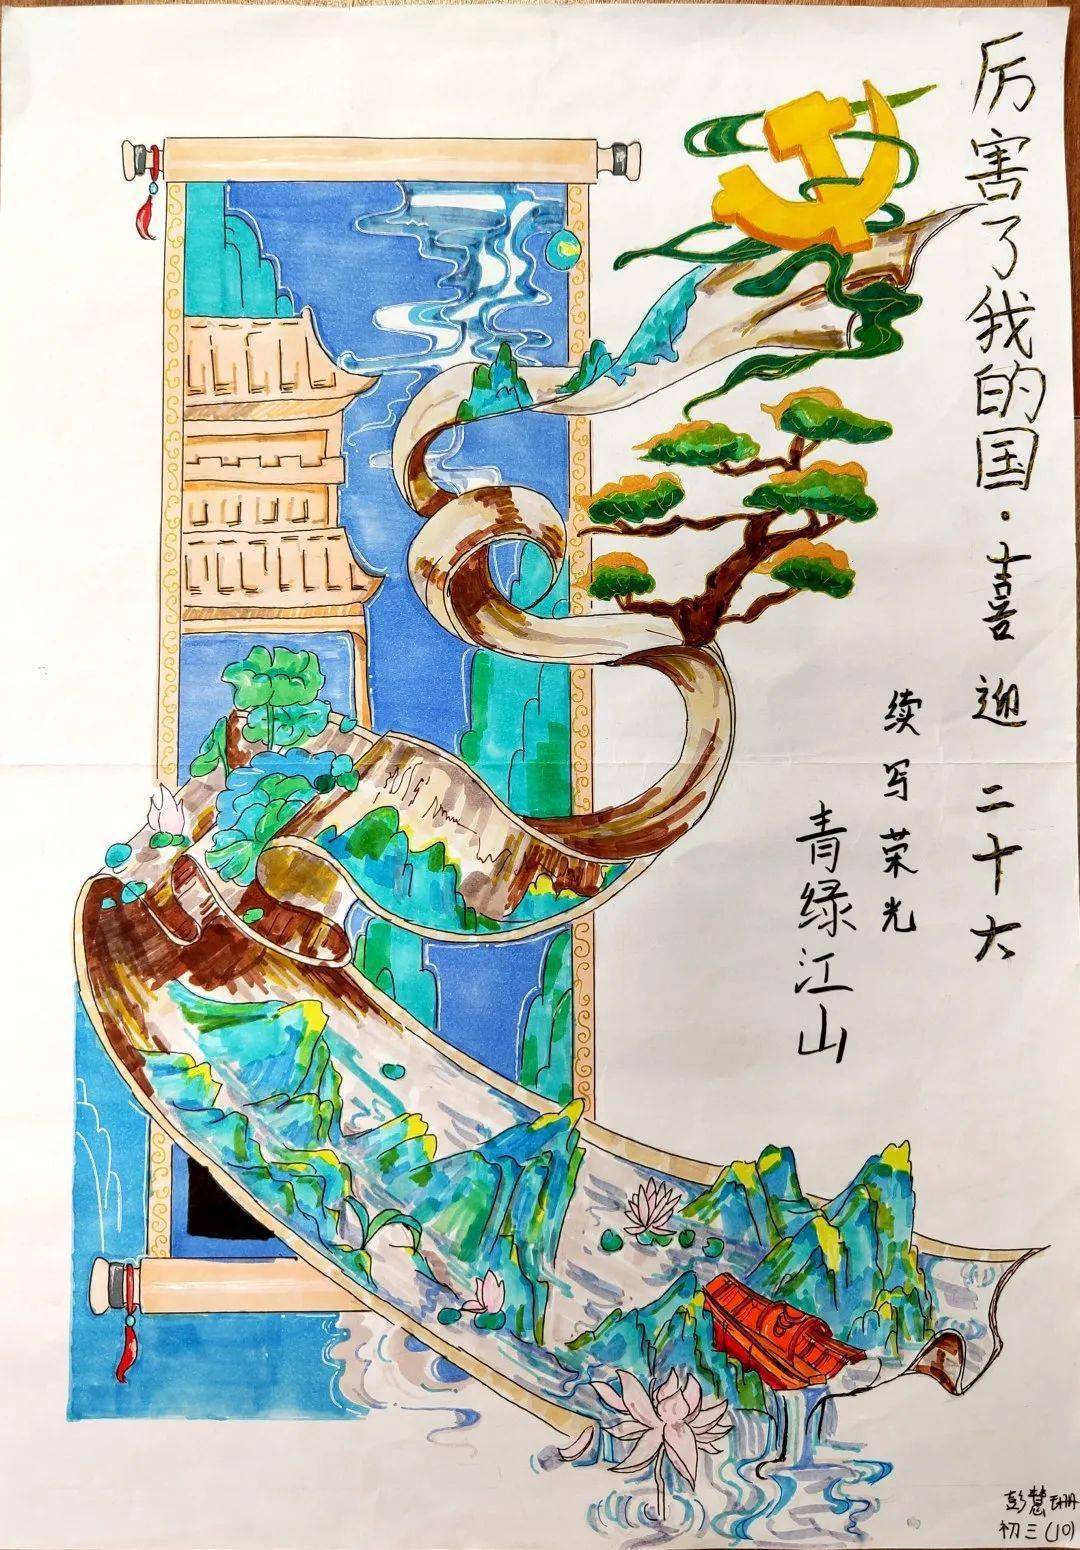 厉害了我的国·喜迎二十大
续写荣光
青绿江山
彭慧珊
初三(10)